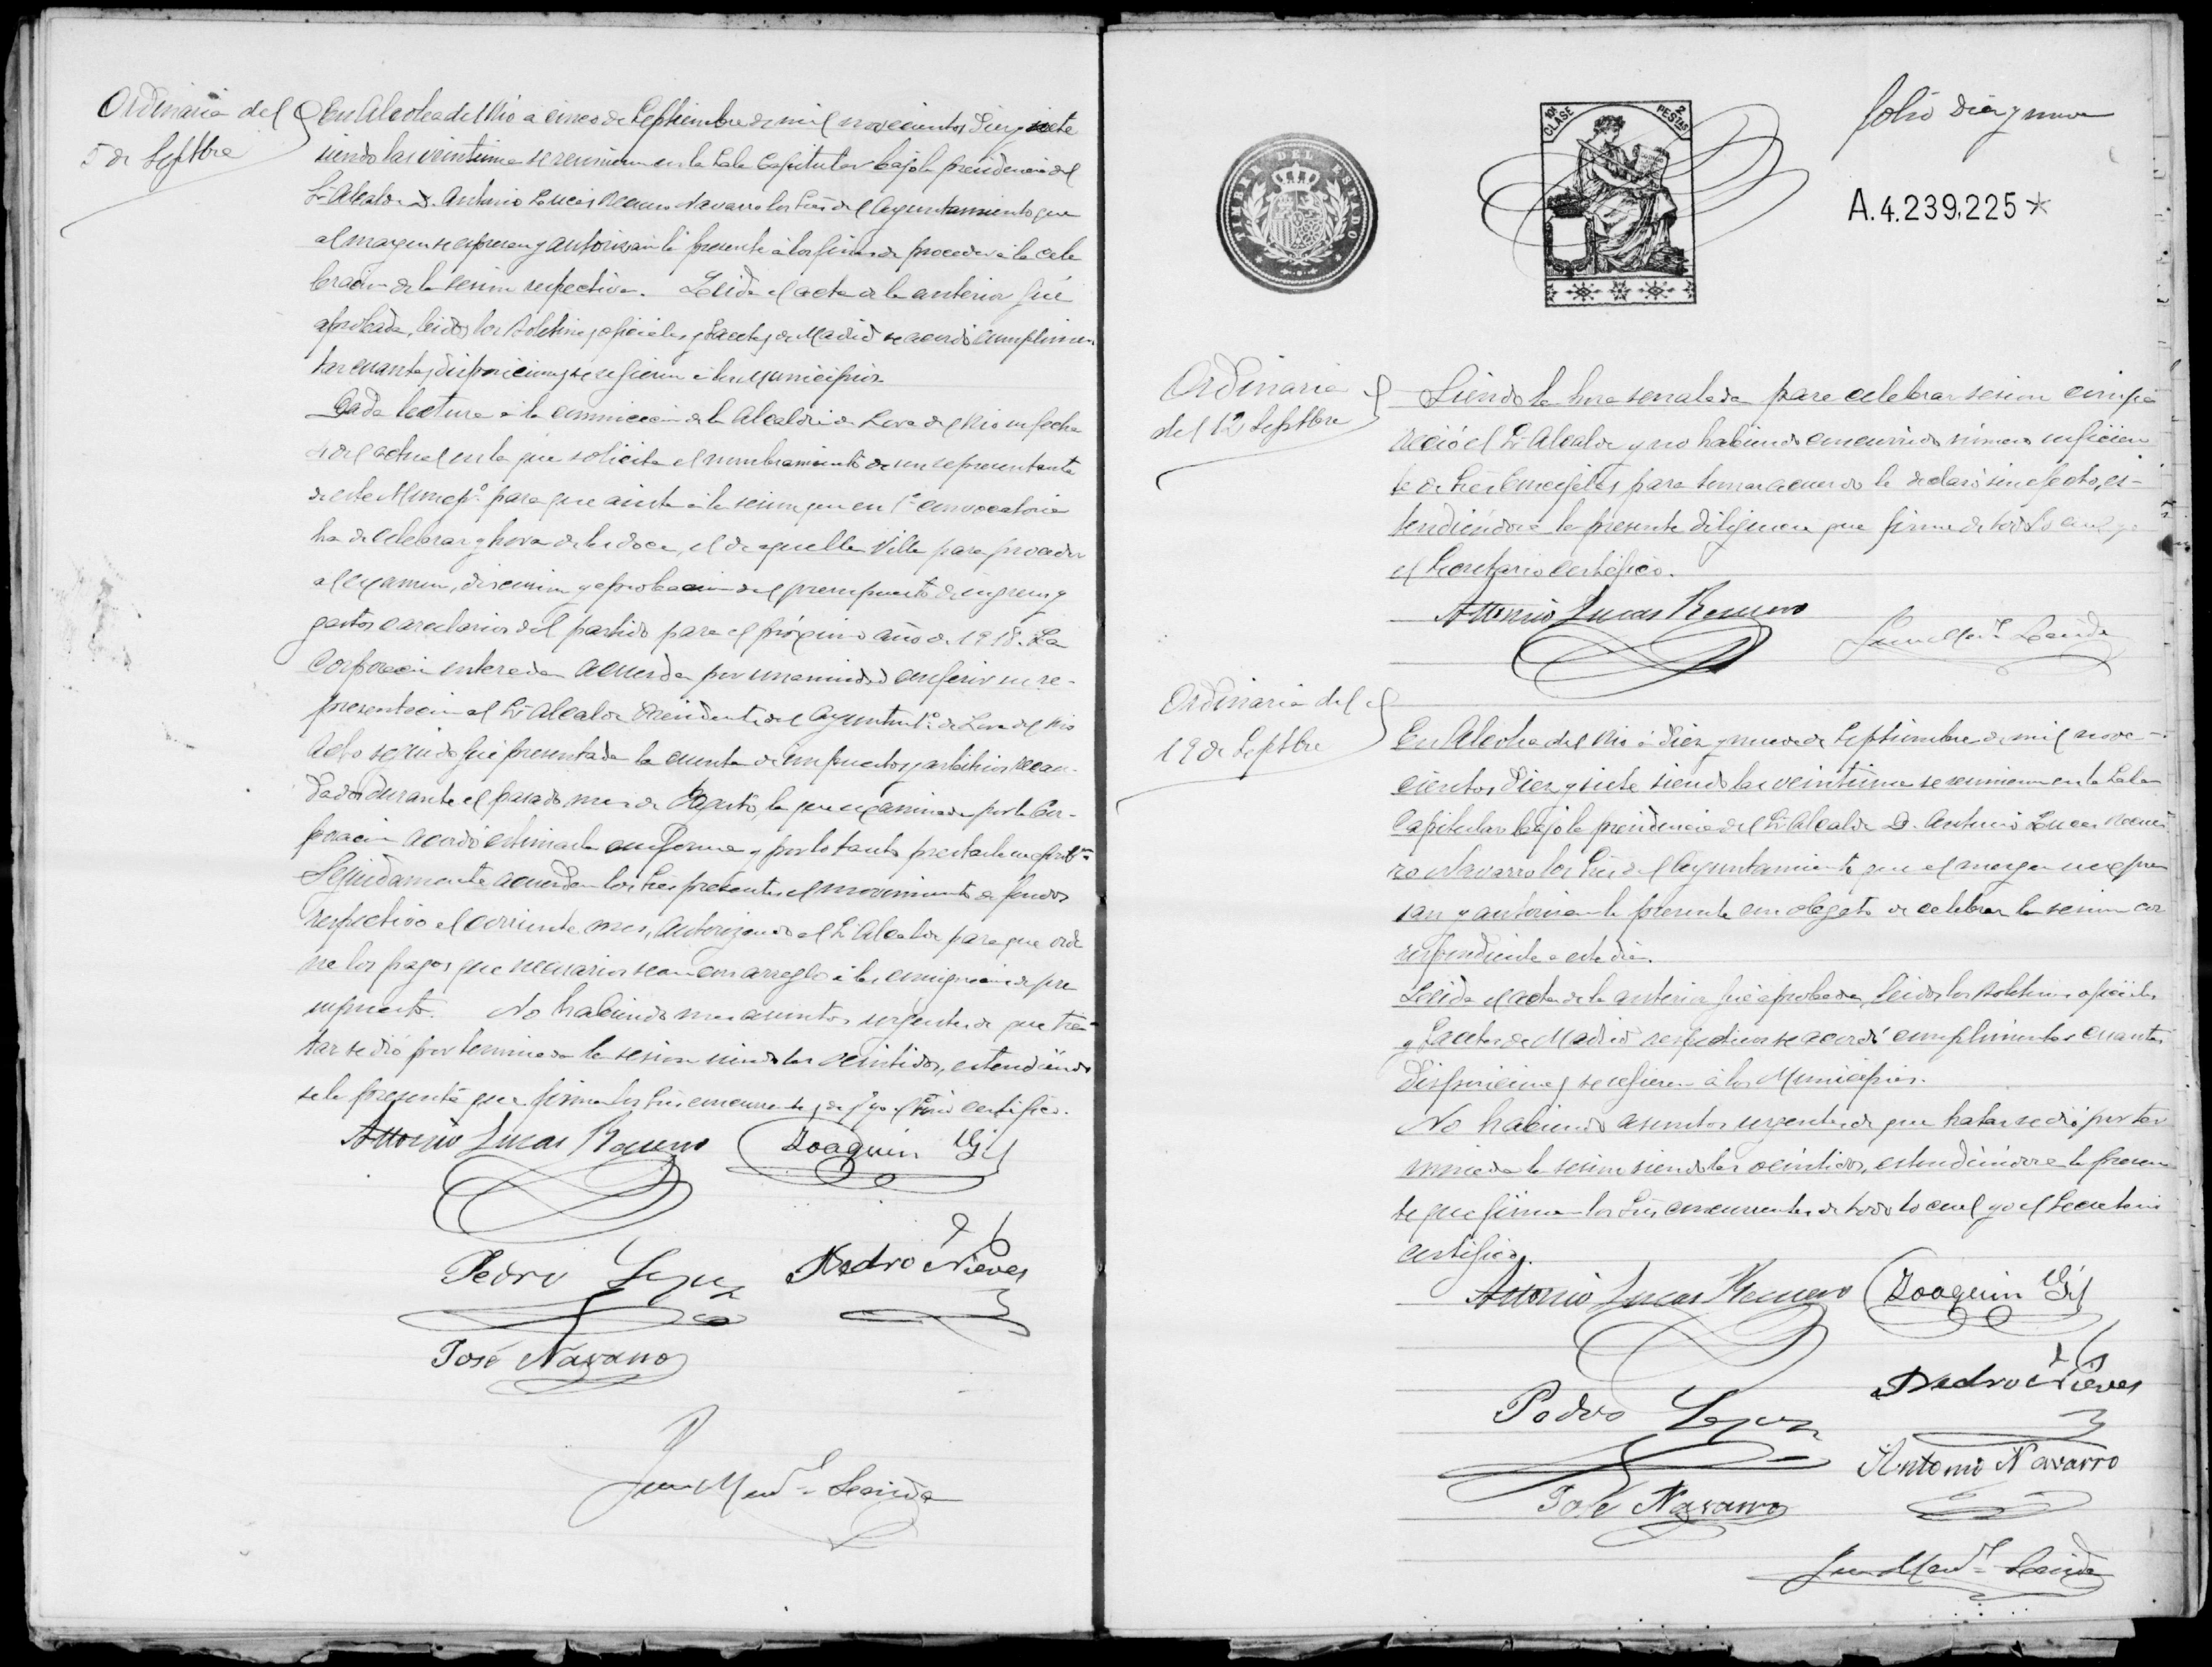 Ordinaria del
5 de Septbre
En Alcolea del Rio a cinco de Septiembre de mil novecientos diez y siete
siendo las veintiuna se reunieron en la Sala Capitular bajo la presidencia del
Sr Alcalde D. Antonio Lucas Romero Navarro los Sres del Ayuntamiento que
al margen se espresan y autorizan la presente á los fines de proceder á la cele
bracion de la sesion respectiva. Leida el acta de la anterior fué
aprobada, leidos los Boletines oficiales y Gacetas de Madrid se acordó cumplimen
tar cuantas disposiciones se refieren á los Municipios.
Dada lectura á la comunicacion de la Alcaldia de Lora del Rio su fecha
del actual en la que solicita el nombramiento de un representante
de este Municpo para que asista á la sesion que en 1ª convocatoria
ha de celebrar y hora de las doce, el de aquella Villa para proceder
al examen, discusion y aprobacion del presupuesto de ingresos y
gastos carcelarios del partido para el próximo año de 1918. La
Corporacion enterada acuerda por unanimidad conferir su re-
presentacion al Sr Alcalde Presidente del Ayuntmto de Lora del Rio
Acto seguido fué presentada la cuenta de impuestos y arbitrios recau-
dados durante el pasado mes de Agosto, la que examinada por la Cor-
poracion acordó estimarla conforme y por lo tanto prestarle su aprobon
Seguidamente acuerdan los Sres presentes el movimiento de fondos
respectivo el corriente mes, autorizando al Sr Alcalde para que orde
ne los pagos que necesarios sean con arreglo á las consignaciones de pre
supuesto. No habiendo mas asuntos urgentes de que tra-
tar se dió por terminada la sesion siendo las veintidos, estendiendo
se la presente que firman los Sres concurrentes, de q yo el Srio certifico.
Antonio Lucas Romero Joaquin Gil
Pedro Lopez Pedro Nieves
José Navarro
Juan Manl Lerida
folio diez y nueve
TIMBRE DEL ESTADO
10ª CLASE 2 PESTAS
A.4.239,225*
Ordinaria
del 12 Septbre
Siendo la hora señalada para celebrar sesion compa
reció el Sr Alcalde y no habiendo concurrido número suficien
te de Sres Concejales para tomar acuerdo la declaró sin efecto, es-
tendiéndose la presente diligencia que firma de todo lo cual yo
el Secretario certifico.
Antonio Lucas Romero
Juan Manl Lerida
Ordinaria del
19 de Septbre
En Alcolea del Rio á diez y nueve de Septiembre de mil nove-
cientos diez y siete siendo las veintiuna se reunieron en la Sala
Capitular bajo la presidencia del Sr Alcalde D. Antonio Lucas Rome
ro Navarro los Sres del Ayuntamiento que al margen se espre
san y autorizan la presente con objeto de celebrar la sesion cor
respondiente a este dia.
Leida el acta de la anterior fué aprobada, leidos los Boletines oficiales
y Gacetas de Madrid respectivas se acordó cumplimentar cuantas
disposiciones se refieren á los Municipios.
No habiendo asuntos urgentes de que tratar se dió por ter
minada la sesion siendo las veintidos, estendiéndose la presen
te que firman los Sres concurrentes de todo lo cual yo el Secretario
certifico.
Antonio Lucas Romero Joaquin Gil
Pedro Nieves
Pedro Lopez
Antonio Navarro
José Navarro
Juan Manl Lerida